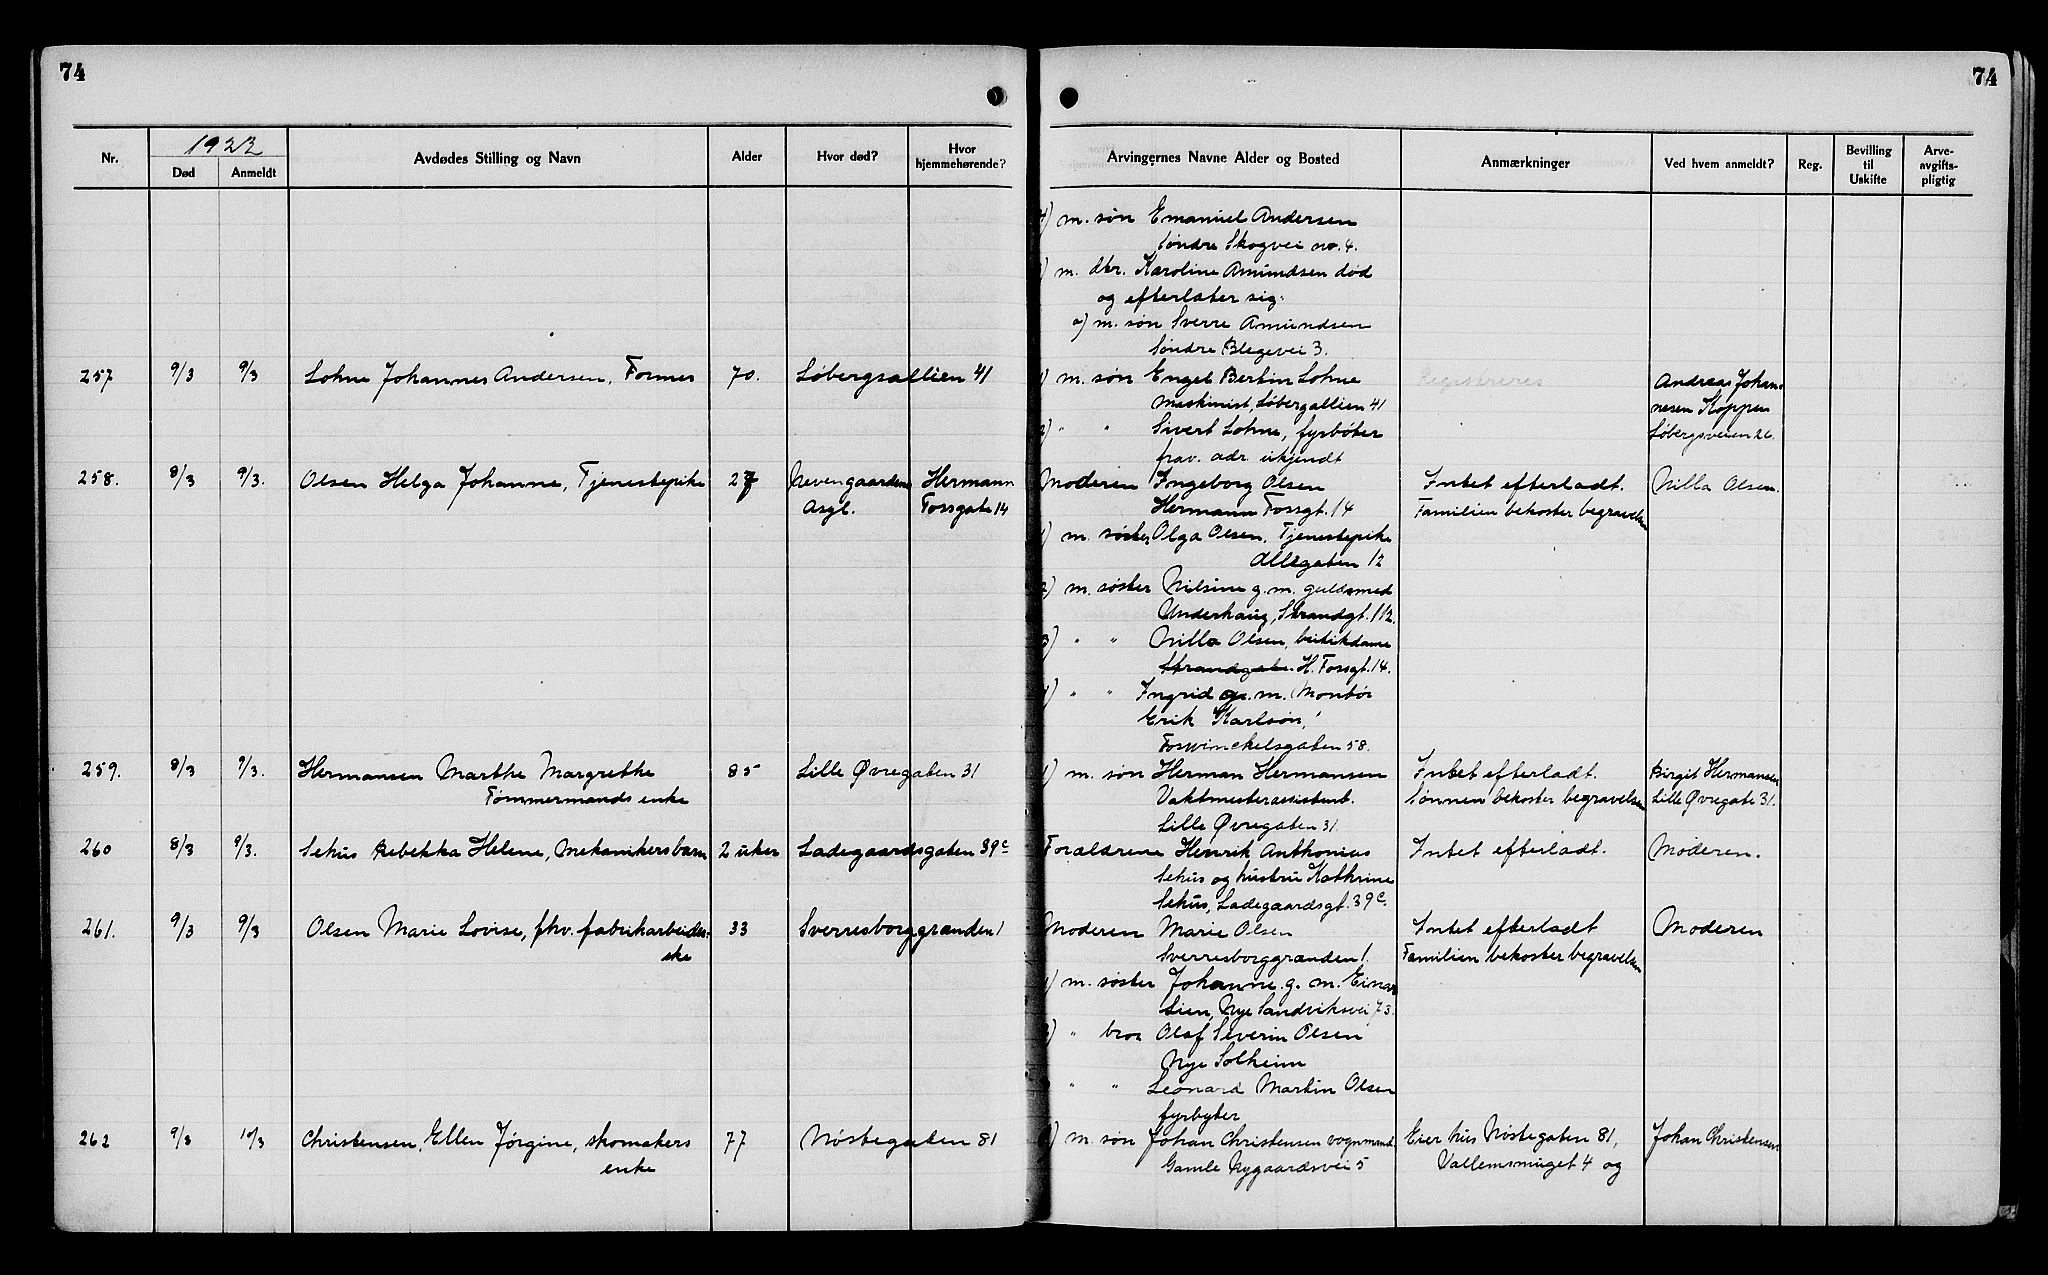 74
74
Nr.
1922
Død
Anmeldt
Avdødes Stilling og Navn
Alder
Hvor død?
Hvor hjemmehørende?
Arvingernes Navne Alder og Bosted
Anmærkninger
Ved hvem anmeldt?
Reg.
Bevilling til Uskifte
Arve-avgifts-pligtig
4) m. søn Emanuel Andersen
Søndre Skogvei no. 4.
) m. dtr. Karoline Amundsen død
og efterlater sig:
a) m. søn Sverre Amundsen
Søndre Blegevei 3.
257 9/3 9/3 Lohne Johannes Andersen, Former 70. Løbergsallien 41
1) m. søn Engel Bertin Lohne
maskinist, Løbergallien 41
2) " " Sivert Lohne, fyrbøter
frav. adr. ukjendt
Registreres
Andreas Johan-
nesen Koppen
Løbergsveien 26.
258. 8/3 9/3. Olsen Helga Johanne, Tjenestepike 27 Nevengaardens
Asyl.
Hermann
Fossgate 14
Moderen Ingeborg Olsen
Hermann Fossgt. 14
1) m. søster Olga Olsen, Tjenestepike
Allégaten 12
2) m. søster Nilsine g. m. guldsmed
Underhaug, Strandgt. 112.
3) " " Nilla Olsen, butikdame
Strandgaten H. Fossgt. 14.
4) " " Ingrid g. m. Montør
Erik Karlsøn,
Foswinckelsgaten 58.
Intet efterladt.
Familien bekoster begravelsen
Nilla Olsen.
259. 8/3 9/3. Hermansen Marthe Margrethe
Tømmermands enke
85 Lille Øvregaten 31
1) m. søn Herman Hermansen
Vaktmesterassistent.
Lille Øvregaten 31
Intet efterladt.
Sønnen bekoster begravelsen
Birgit Hermansen
Lille Øvregate 31.
260 8/3 9/3. Sehus Rebekka Helene, Mekanikersbarn 2 uker Ladegaardsgaten 39c
Forældrene Henrik Anthonius
Sehus og hustru Kathrine
Sehus, Ladegaardsgt. 39c.
Intet efterladt.
Moderen.
261. 9/3 9/3 Olsen Marie Lovise, fhv. fabrikarbeider-
ske
33 Sverresborggranden 1
Moderen Marie Olsen
Sverresborggranden 1.
1) m. søster Johanne g. m. Einar
Lien, Nye Sandviksvei 73.
2) " bror Olaf Severin Olsen
Nye Solheim
" " Leonard Martin Olsen
fyrbyter
Intet efterladt
Familien bekoster begravelsen
Moderen
262 9/3 10/3 Christensen, Ellen Jørgine, skomakers
enke
77 Nøstegaten 81
1) m. søn Johan Christensen vognmand
Gamle Nygaardsvei 5
Eier hus Nøstegaten 81,
Vallemsmuget 4 og
Johan Christensen